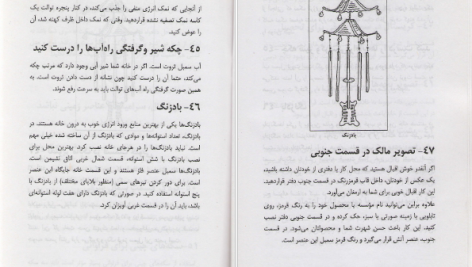 از آنجایی که نمک انرژی منفی را جذب می‌کند، در کنار پنجره توالت یک
کاسه نمک تصفیه نشده قرار دهید. وقتی که نمک داخل ظرف کهنه شد، آن
را عوض کنید.
۴۵- چکه شیر و گرفتگی راه‌آب‌ها را درست کنید
آب سمبل ثروت است. اگر در خانه شما شیر آبی وجود دارد که مرتب چکه
می‌کند، حتما آن را درست کنید چون نشانه از دست دادن ثروت است. به
همین صورت گرفتگی راه آب‌های توالت باید به سرعت رفع شوند.
۴۶- بادزنگ
بادزنگ‌ها یکی از بهترین منابع ورود انرژی خوب به درون خانه هستند. در
بادزنگ، تعداد استوانه‌ها و موادی که بادزنگ از آن ساخته شده خیلی مهم
است. نباید بادزنگ‌ها را در هر جای خانه نصب کرد. بهترین محل برای
نصب بادزنگ با شش استوانه، قسمت شمال غربی اتاق نشیمن است.
بادزنگ‌ها سمبل عنصر فلز هستند و این قسمت خانه جایگاه این عنصر
است. برای دور کردن تیرهای سمی (منظور بلایای مختلف) از بادزنگ با
پنج استوانه استفاده کنید. در صورتی که بادزنگ دارای هفت لوله استوانه‌ای
باشد، باید آن را در قسمت غربی آویزان کرد.
بادزنگ
۴۷- تصویر مالک در قسمت جنوبی
اگر آنقدر خوش اقبال هستید که محل کار یا دفتری از خودتان داشته باشید،
یک عکس از خودتان، داخل قاب قرمز رنگ در قسمت جنوب دفتر قرار دهید.
این کار اقبال خوبی برای شما به ارمغان می‌آورد.
علاوه بر این می‌توانید نام مؤسسه یا محصول خود را به رنگ قرمز، روی
تابلویی با زمینه صورتی یا سبز، حک کرده و در قسمت جنوبی دفتر نصب
کنید. این کار باعث حسن شهرت شما و محصولتان می‌شود. در قسمت
جنوب، عنصر آتش قرار می‌گیرد و رنگ قرمز سمبل این عنصر است.